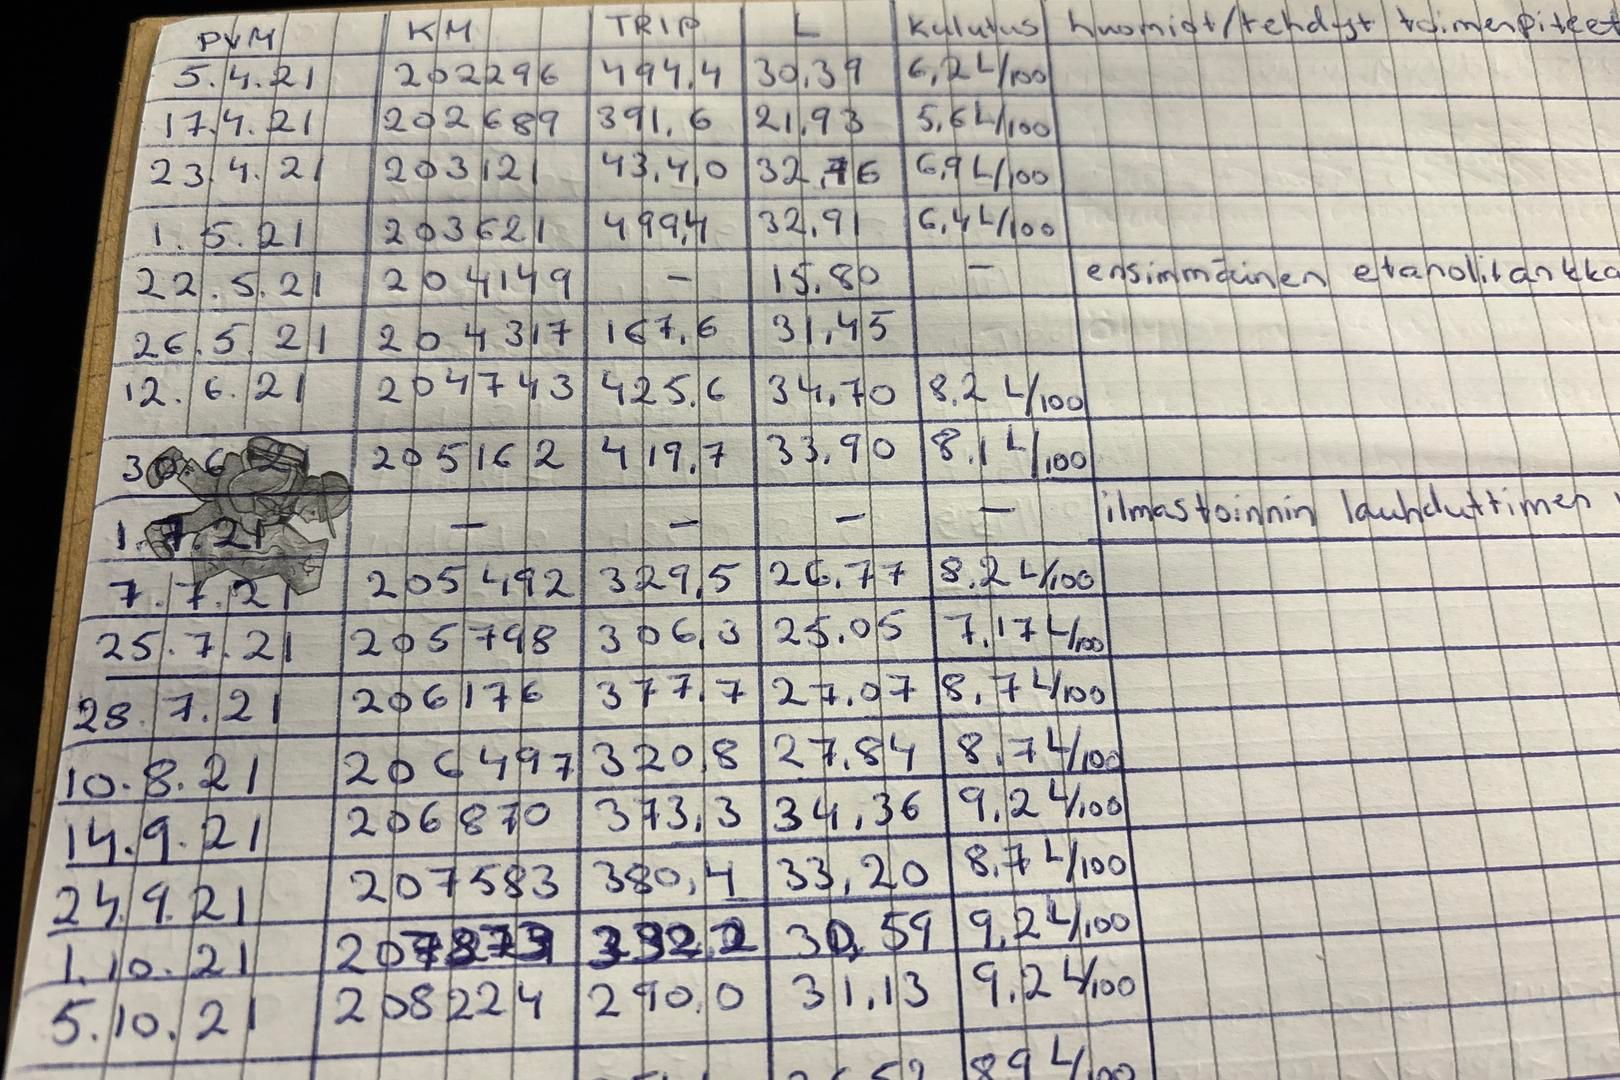 PVM KM TRIP L Kulutus huomiot/tehdyt toimenpiteet
5.4.21 202296 494,4 30,39 6,2 L/100
17.4.21 202689 391,6 21,93 5,6 L/100
23.4.21 203121 43,4,0 32,76 6,9 L/100
1.5.21 203621 499,4 32,91 6,4 L/100
22.5.21 204149 - 15,80 - ensimmäinen etanolitankka
26.5.21 204317 167,6 31,45
12.6.21 204743 425,6 34,70 8,2 L/100
30.6.21 205162 419,7 33,90 8,1 L/100
1.7.21 - - - - ilmastoinnin lauhduttimen
7.7.21 205492 329,5 26,77 8,2 L/100
25.7.21 205798 306,3 25,05 7,17 L/100
28.7.21 206176 377,7 27,07 8,7 L/100
10.8.21 206497 320,8 27,84 8,7 L/100
14.9.21 206870 373,3 34,36 9,2 L/100
24.9.21 207583 380,4 33,20 8,7 L/100
1.10.21 30,59 9,2 L/100
5.10.21 208224 290,0 31,13 9,2 L/100
8,9 L/100